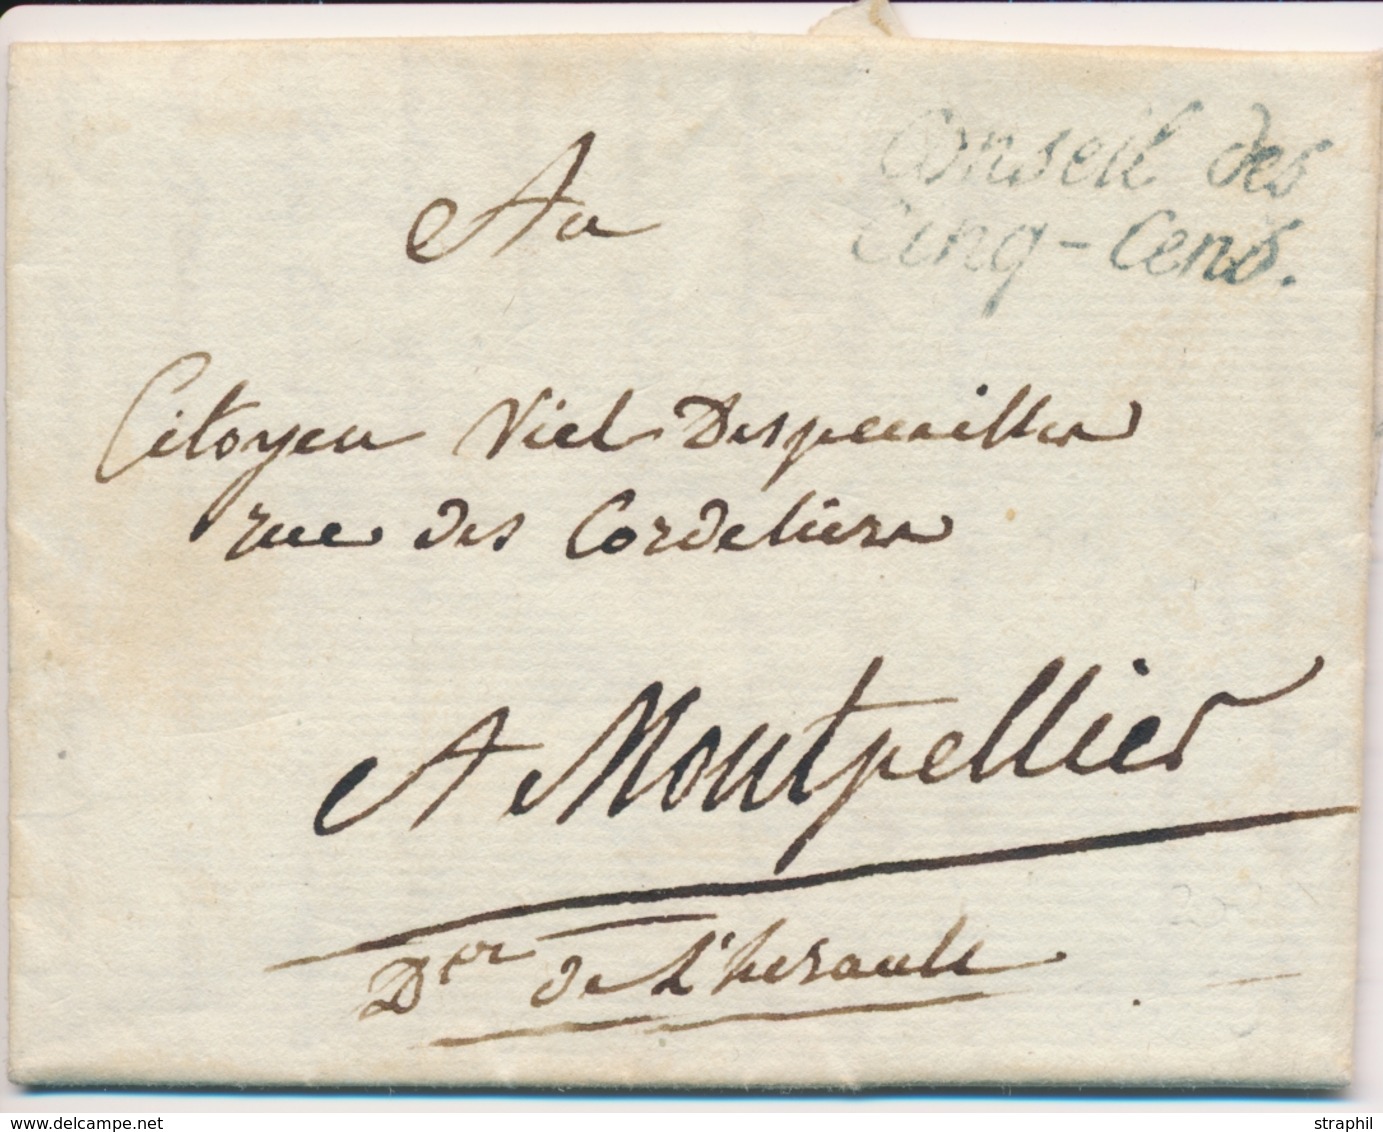 Conseil des
Cinq-Cens.
Au
Citoyen Viel Despeuilles
rue des Cordeliers
A Montpellier
Der de L'herault
www.delcampe.net
straphil